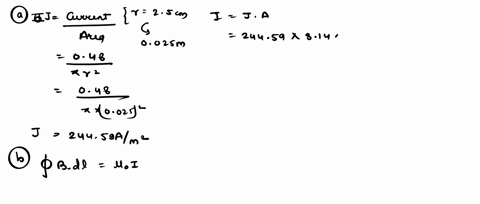 (a) J = Current / Area { r = 2.5cm
0.025m
= 0.48 / πr²
= 0.48 / π×(0.025)²
J = 244.59A/m²
I = J.A
= 244.59 × 3.14
(b) ∮ B.dl = μ₀ I